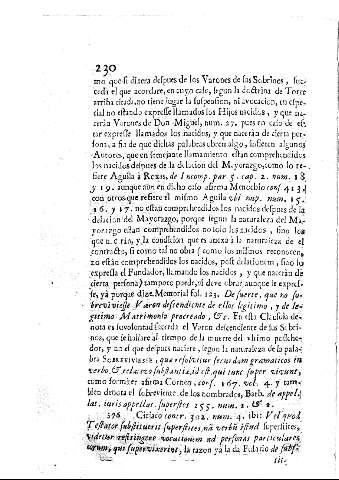 230
mo que si dixera despues de los Varones de sus Sobrinos, suc-
ceda el que acordare, en cuyo caso, segun la doctrina de Torre
arriba citada, no tiene lugar la suspension, ni avocacion, en espe-
cial no estando expressè llamados los Hijos nacidos, y que na-
ceràn Varones de Don Miguel, num. 27. pues en caso de es-
tar expressè llamados los nacidos, y que naceràn de cierta per-
sona, a fin de que dichas palabras obren algo, sostienen algunos
Autores, que en semejante llamamiento estàn comprehendidos
los nacidos despues de la delacion del Mayorazgo, como lo re-
fiere Aguila à Roxas, de Incomp. par. 5. cap. 2. num. 18.
y 19. aunque aun en dicho caso afirma Menochio conf. 413.
con otros que refiere el mismo Aguila ubi sup. num. 15.
16. y 17. no estàn comprehendidos los nacidos despues de la
delacion del Mayorazgo, porque segun la naturaleza del Ma-
yorazgo estàn comprehendidos no solo los nacidos, sino los
que naceràn, y la condicion que es anexa à la naturaleza de el
contracto, si como tal no obra (como los mismos reconocen,
no estàn comprehendidos los nacidos, post delationem, sino lo
expressa el Fundador, llamando los nacidos, y que naceràn de
cierta persona) tampoco puede, ni deve obrar aunque le expres-
se, yà porque dize Memorial fol. 123. De suerte, que no so-
breviviesse Varon descendiente de ellos legitimo, y de le-
gitimo Matrimonio procreado, &c. En esta Clausula de-
nota es su voluntad suceda el Varon descendiente de sus Sobri-
nos, que se hallare al tiempo de la muerte del ultimo posehe-
dor, y no el que despues naciere, segun la naturaleza de la pala-
bra SOBREVIVIESSE, que resolvitur secundum grammaticos in
verbo, & relativo substantia, id est, qui tunc super vivunt,
como formiter afirma Corneo, cons. 167. vol. 4. y tam-
bien denota el sobreviviente de los nombrados, Barb. de appel-
lat. iuris appellat. superstes 255. num. 1. & 2.
576 Ciriaco contr. 302. num. 4. ibi: Vel quod
Testator substituerit superstites, nã verbũ istud superstites,
videtur restringere vocationem ad personas particulares
eorum, qui supervixerint, la razon yà la dà Fusario de subs-
ti-